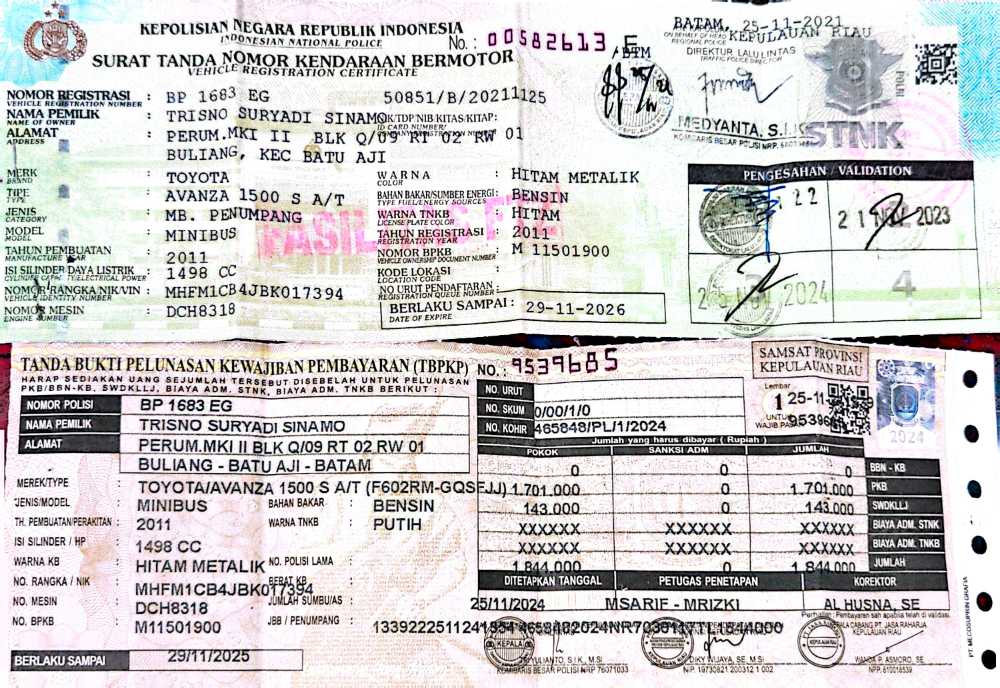 KEPOLISIAN NEGARA REPUBLIK INDONESIA
INDONESIAN NATIONAL POLICE
No.: 00582613 F
SURAT TANDA NOMOR KENDARAAN BERMOTOR
VEHICLE REGISTRATION CERTIFICATE
BTM
BATAM, 25-11-2021
KEPULAUAN RIAU
ON BEHALF OF HEAD
REGIONAL POLICE
DIREKTUR LALU LINTAS
TRAFFIC POLICE DIRECTOR
MEDYANTA, S.I.K
KOMISARIS BESAR POLISI NRP.
POLRI
STNK
NOMOR REGISTRASI : BP 1683 EG 50851/B/20211125
VEHICLE REGISTRATION NUMBER
NAMA PEMILIK : TRISNO SURYADI SINAMO
NAME OF OWNER
K/TDP/NIB/KITAS/KITAP:
ID CARD NUMBER/
ALAMAT : PERUM.MKI II BLK Q/09 RT 02 RW 01
ADDRESS
BULIANG, KEC BATU AJI
MERK : TOYOTA
BRAND
TIPE : AVANZA 1500 S A/T
TYPE
JENIS : MB. PENUMPANG
CATEGORY
MODEL : MINIBUS
MODEL
TAHUN PEMBUATAN : 2011
MANUFACTURE YEAR
ISI SILINDER/DAYA LISTRIK : 1498 CC
CYLINDER CAPACITY/ELECTRICAL POWER
NOMOR RANGKA/NIK/VIN : MHFM1CB4JBK017394
VEHICLE IDENTITY NUMBER
NOMOR MESIN : DCH8318
ENGINE NUMBER
WARNA : HITAM METALIK
COLOR
BAHAN BAKAR/SUMBER ENERGI : BENSIN
TYPE FUEL/ENERGY SOURCES
WARNA TNKB : HITAM
LICENSE PLATE COLOR
TAHUN REGISTRASI : 2011
REGISTRATION YEAR
NOMOR BPKB : M 11501900
VEHICLE OWNERSHIP DOCUMENT NUMBER
KODE LOKASI :
LOCATION CODE
NO URUT PENDAFTARAN :
REGISTRATION QUEUE NUMBER
BERLAKU SAMPAI : 29-11-2026
DATE OF EXPIRE
PENGESAHAN / VALIDATION
22
21 NOV 2023
25 NOV 2024
4
TANDA BUKTI PELUNASAN KEWAJIBAN PEMBAYARAN (TBPKP)
HARAP SEDIAKAN UANG SEJUMLAH TERSEBUT DISEBELAH UNTUK PELUNASAN
PKB/BBN-KB, SWDKLLJ, BIAYA ADM. STNK, BIAYA ADM. TNKB BERIKUT :
NO.: 9539685
SAMSAT PROVINSI
KEPULAUAN RIAU
NO. URUT
NO. SKUM 0/00/1/0
NO. KOHIR 465848/PL/1/2024
Lembar
1
UNTUK
WAJIB PAJAK
25-11
2024
NOMOR POLISI BP 1683 EG
NAMA PEMILIK TRISNO SURYADI SINAMO
ALAMAT PERUM.MKI II BLK Q/09 RT 02 RW 01
BULIANG - BATU AJI - BATAM
MEREK/TYPE : TOYOTA/AVANZA 1500 S A/T (F602RM-GQSEJJ)
JENIS/MODEL : MINIBUS
BAHAN BAKAR : BENSIN
TH. PEMBUATAN/PERAKITAN : 2011
WARNA TNKB : PUTIH
ISI SILINDER / HP : 1498 CC
WARNA KB : HITAM METALIK
NO. POLISI LAMA :
NO. RANGKA / NIK : MHFM1CB4JBK017394
BERAT KB :
NO. MESIN : DCH8318
JUMLAH SUMBU/AS :
NO. BPKB : M11501900
JBB / PENUMPANG :
BERLAKU SAMPAI 29/11/2025
Jumlah yang harus dibayar ( Rupiah )
POKOK SANKSI ADM JUMLAH
0 0 0 BBN - KB
1.701.000 0 1.701.000 PKB
143.000 0 143.000 SWDKLLJ
XXXXXX XXXXXX XXXXXX BIAYA ADM. STNK
XXXXXX XXXXXX XXXXXX BIAYA ADM. TNKB
1.844.000 0 1.844.000 JUMLAH
DITETAPKAN TANGGAL PETUGAS PENETAPAN KOREKTOR
25/11/2024 MSARIF - MRIZKI AL HUSNA, SE
KEPALA CABANG PT. JASA RAHARJA
KEPULAUAN RIAU
TRI YULIANTO, S.I.K., M.Si
KOMBARIS BESAR POLISI NRP 76071033
DIKY WIJAYA, SE, M.Si
NIP. 19730821 200312 1 002
WANDA P. ASMORO, SE
PT. MECOSUPRIN GRAFIA